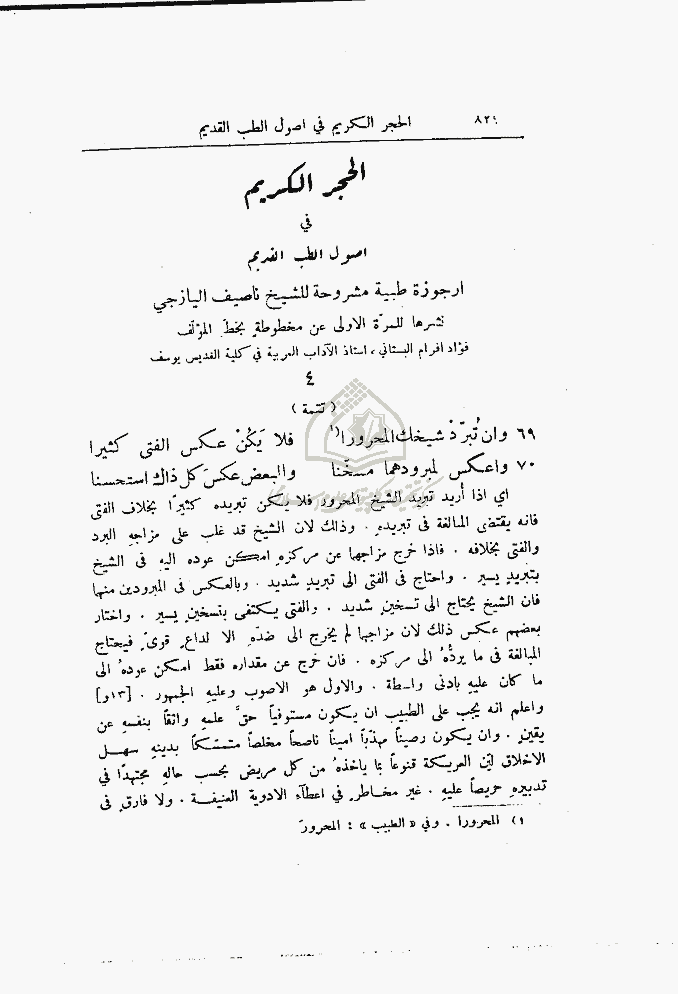 ٨٢٩ الحجر الكريم في اصول الطب القديم
الحجر الكريم
في
اصول الطب القديم
ارجوزة طبية مشروحة للشيخ ناصيف اليازجي
نشرها للمرّة الاولى عن مخطوطةٍ بخطّ المؤلف
فؤاد افرام البستاني، استاذ الآداب العربية في كلية القديس يوسف
٤
( تتمة )
٦٩ وان تُبرّدْ شيخك المحرورا ١) فلا يَكُنْ عكس الفتى كثيرا
٧٠ واعكس لمبرودهما مسخّنا والبعض عكسَ كل ذاك استحسنا
اي اذا أُريد تبريد الشيخ المحرور فلا يكن تبريده كثيرًا بخلاف الفتى
فانه يقتضى المبالغة فى تبريدهِ . وذلك لان الشيخ قد غلب على مزاجهِ البرد
والفتى بخلافه . فاذا خرج مزاجها عن مركزهِ امكن عوده اليه فى الشيخ
بتبريدٍ يسير . واحتاج فى الفتى الى تبريدٍ شديد . وبالعكس فى المبرودين منهما
فان الشيخ يحتاج الى تسخين شديد . والفتى يكتفى بتسخين يسير . واختار
بعضهم عكس ذلك لان مزاجها لم يخرج الى ضدّهِ الا لداعٍ قوىّ فيحتاج
المبالغة فى ما يردُّهُ الى مركزه . فان خرج عن مقداره فقط امكن عودهُ الى
ما كان عليهِ بادنى واسطة . والاول هو الاصوب وعليهِ الجمهور . [١٣و]
واعلم انه يجب على الطبيب ان يكون مستوفياً حقَّ علمهِ واثقاً بنفسهِ عن
يقينٍ . وان يكون رصيناً مهذّباً اميناً ناصحاً مخلصاً متمسّكاً بدينهِ سهل
الاخلاق ليّن العريكة قنوعاً بما ياخذهُ من كل مريض بحسب حالهِ مجتهدًا في
تدبيرهِ حريصاً عليهِ . غير مخاطرٍ في اعطاء الادوية العنيفة . ولا فارقٍ فى
١) المحرورا . وفي «الطبيب» : المحرورَ